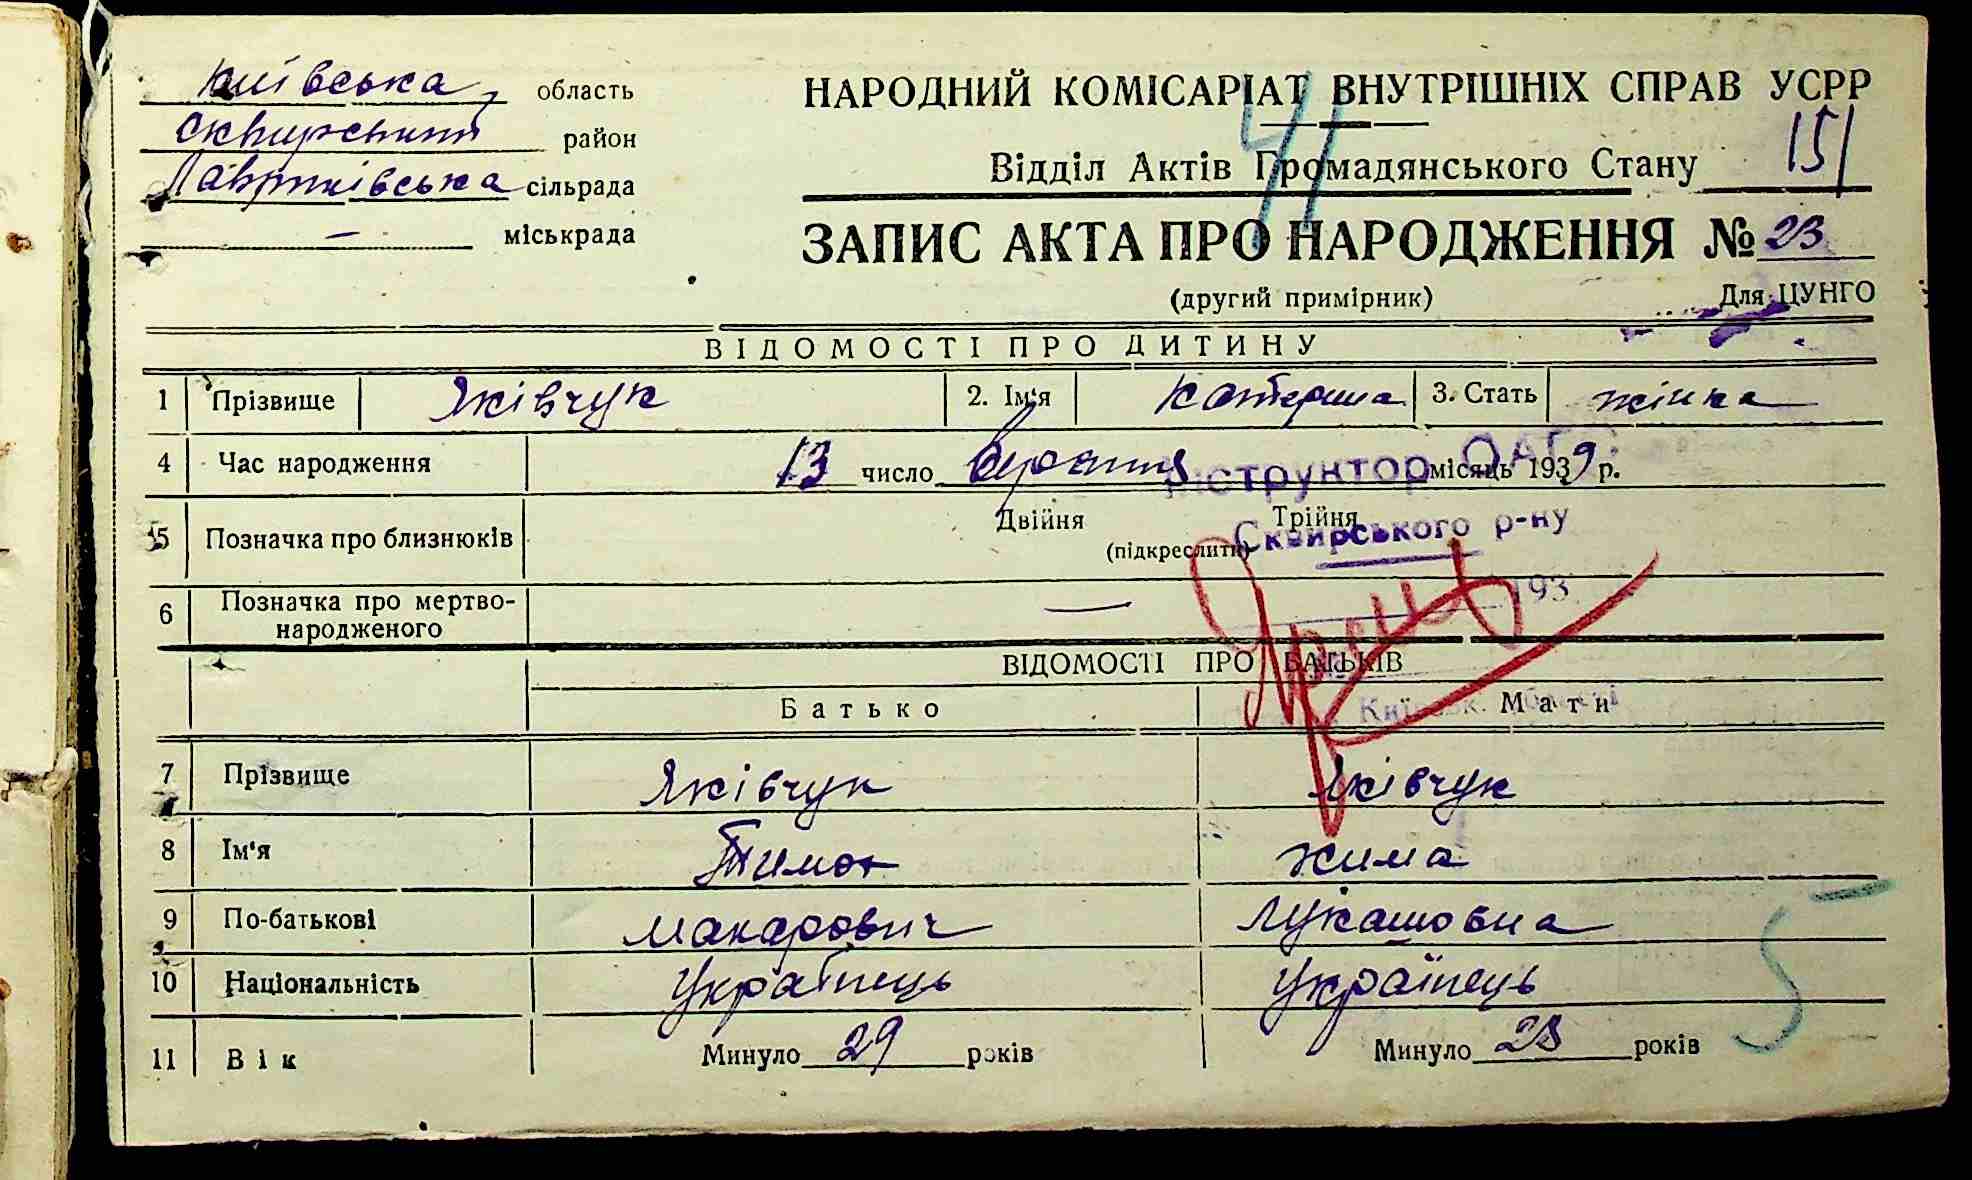 Київська область
Сквирський район
Лавриківська сільрада
— міськрада
НАРОДНИЙ КОМІСАРІАТ ВНУТРІШНІХ СПРАВ УСРР
41
Відділ Актів Громадянського Стану 151
ЗАПИС АКТА ПРО НАРОДЖЕННЯ № 23
(другий примірник) Для ЦУНГО
ВІДОМОСТІ ПРО ДИТИНУ
1 Прізвище Яківчук 2. Ім'я Катерина 3. Стать жінка
4 Час народження 13 число Вересня місяць 1939 р.
Інструктор ОАГС
5 Позначка про близнюків Двійня Трійня
(підкреслити)
Сквирського р-ну
6 Позначка про мертво-
народженого —
193
ВІДОМОСТІ ПРО БАТЬКІВ
Батько Мати
Київськ. області
7 Прізвище Яківчук Яківчук
8 Ім'я Тимох Хима
9 По-батькові Макарович Лукашовна
10 Національність Українець Українець
11 Вік Минуло 29 років Минуло 28 років
5